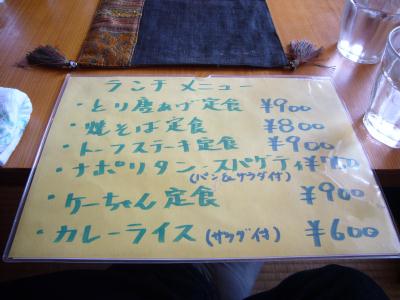 ランチメニュー
・とり唐あげ定食 ¥900
・焼そば定食 ¥800
・トーフステーキ定食 ¥900
・ナポリタンスパゲティ ¥700
(パン&サラダ付)
・ケーちゃん定食 ¥900
・カレーライス (サラダ付) ¥600